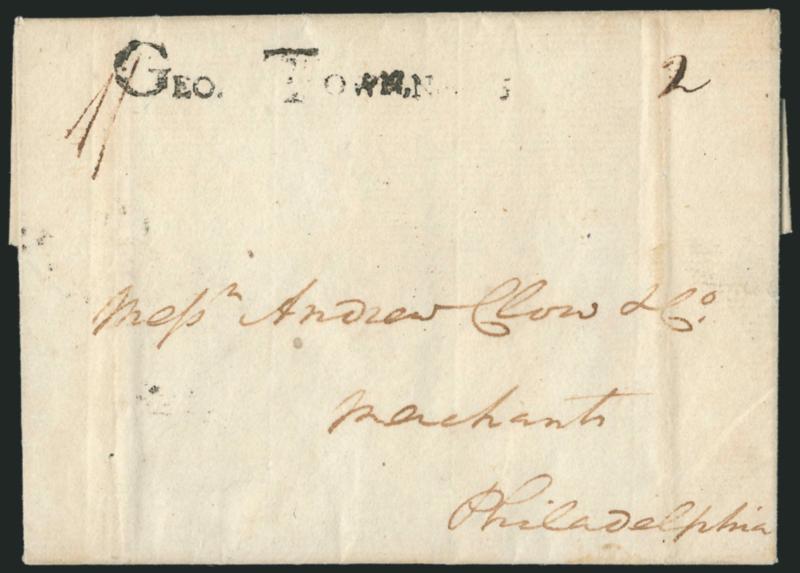 Geo. Town, N 5 2
Messrs Andrew Clow & Co.
Merchants
Philadelphia